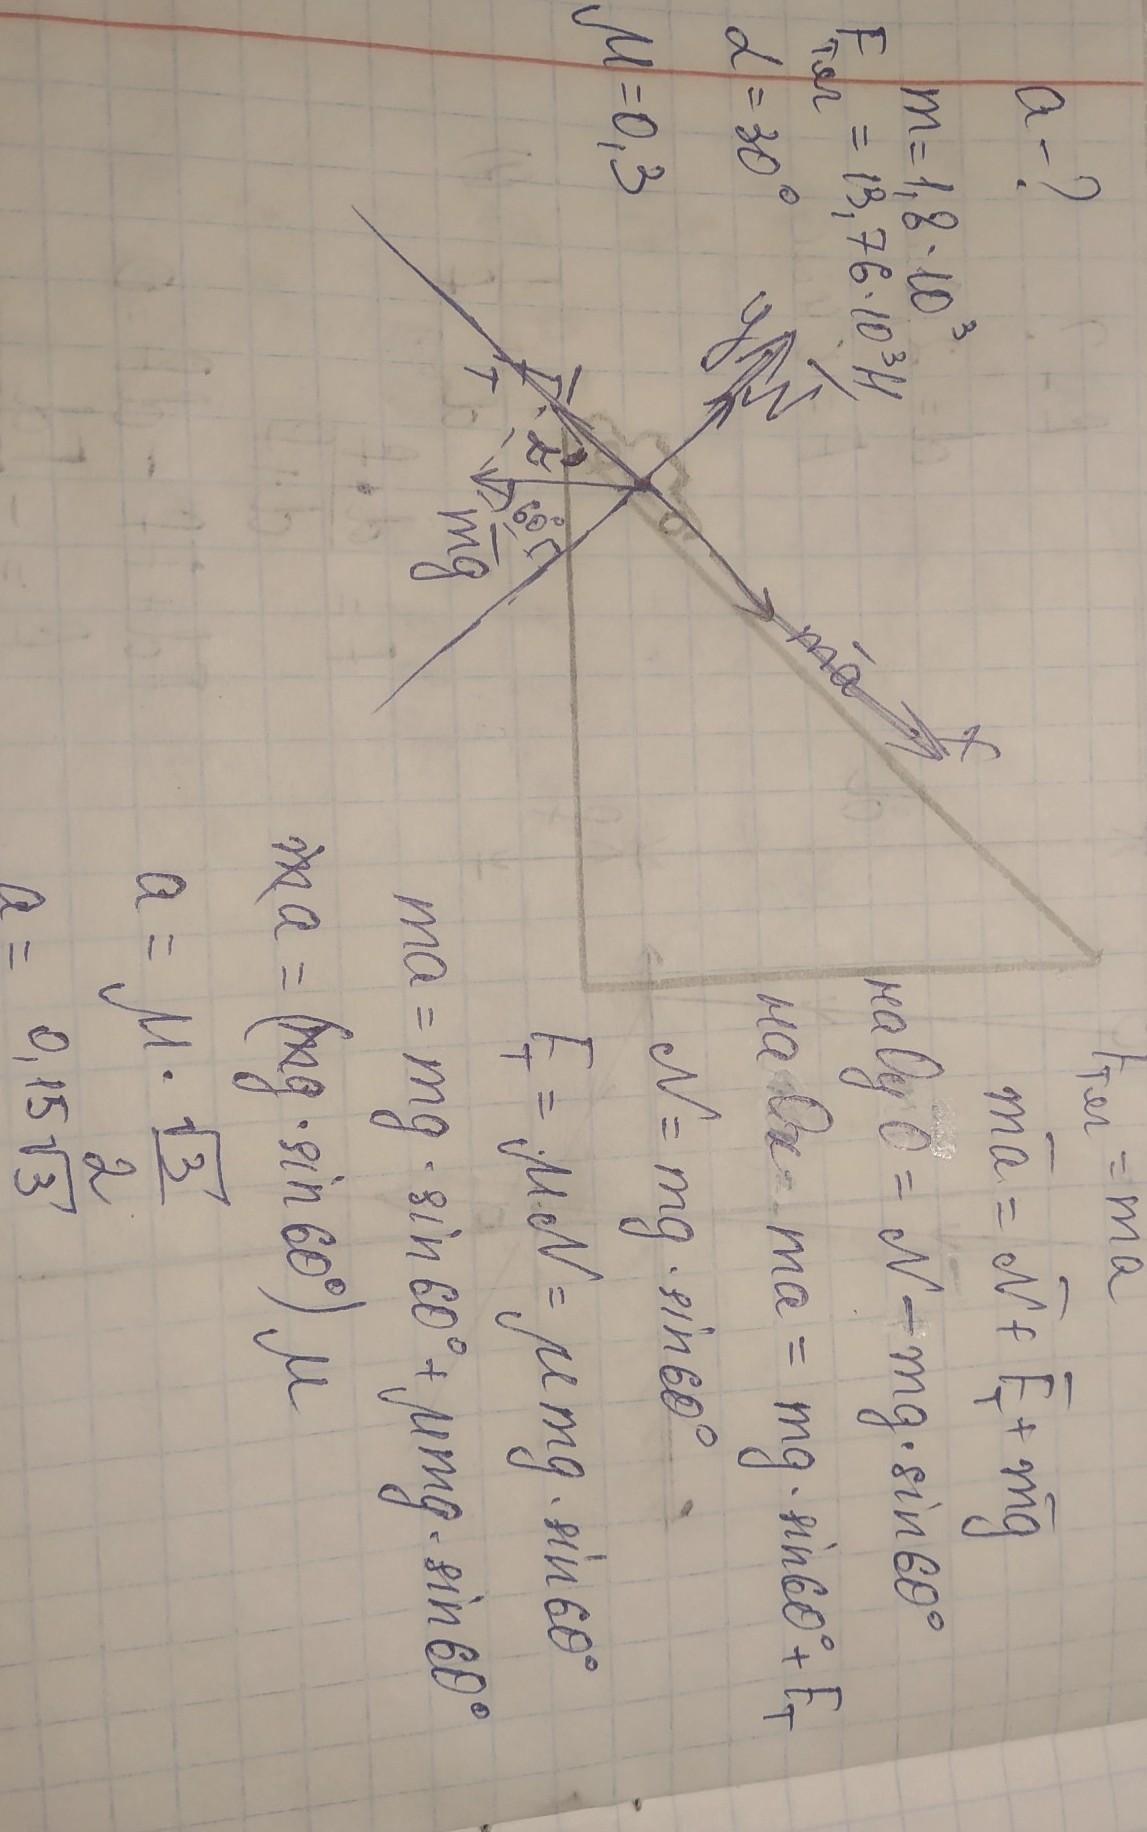 a - ?
m = 1,8 · 10³
Fтяг = 13,76 · 10³ Н
α = 30°
μ = 0,3
y
N̅
ma̅
x
F̅т
60°
mg̅
Fтяг = ma
ma̅ = N̅ + F̅т + mg̅
на Oy 0 = N - mg · sin60°
на Ox ma = mg · sin60° + Fт
N = mg · sin60°
Fт = μN = μmg · sin60°
ma = mg · sin60° + μmg · sin60°
ma = (mg · sin60°)μ
a = μ · √3/2
a = 0,15√3